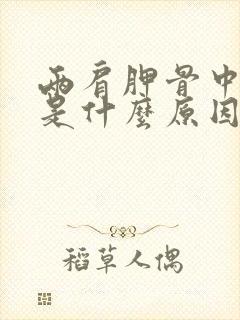 兩肩胛骨中
是什麼原因
稻草人偶